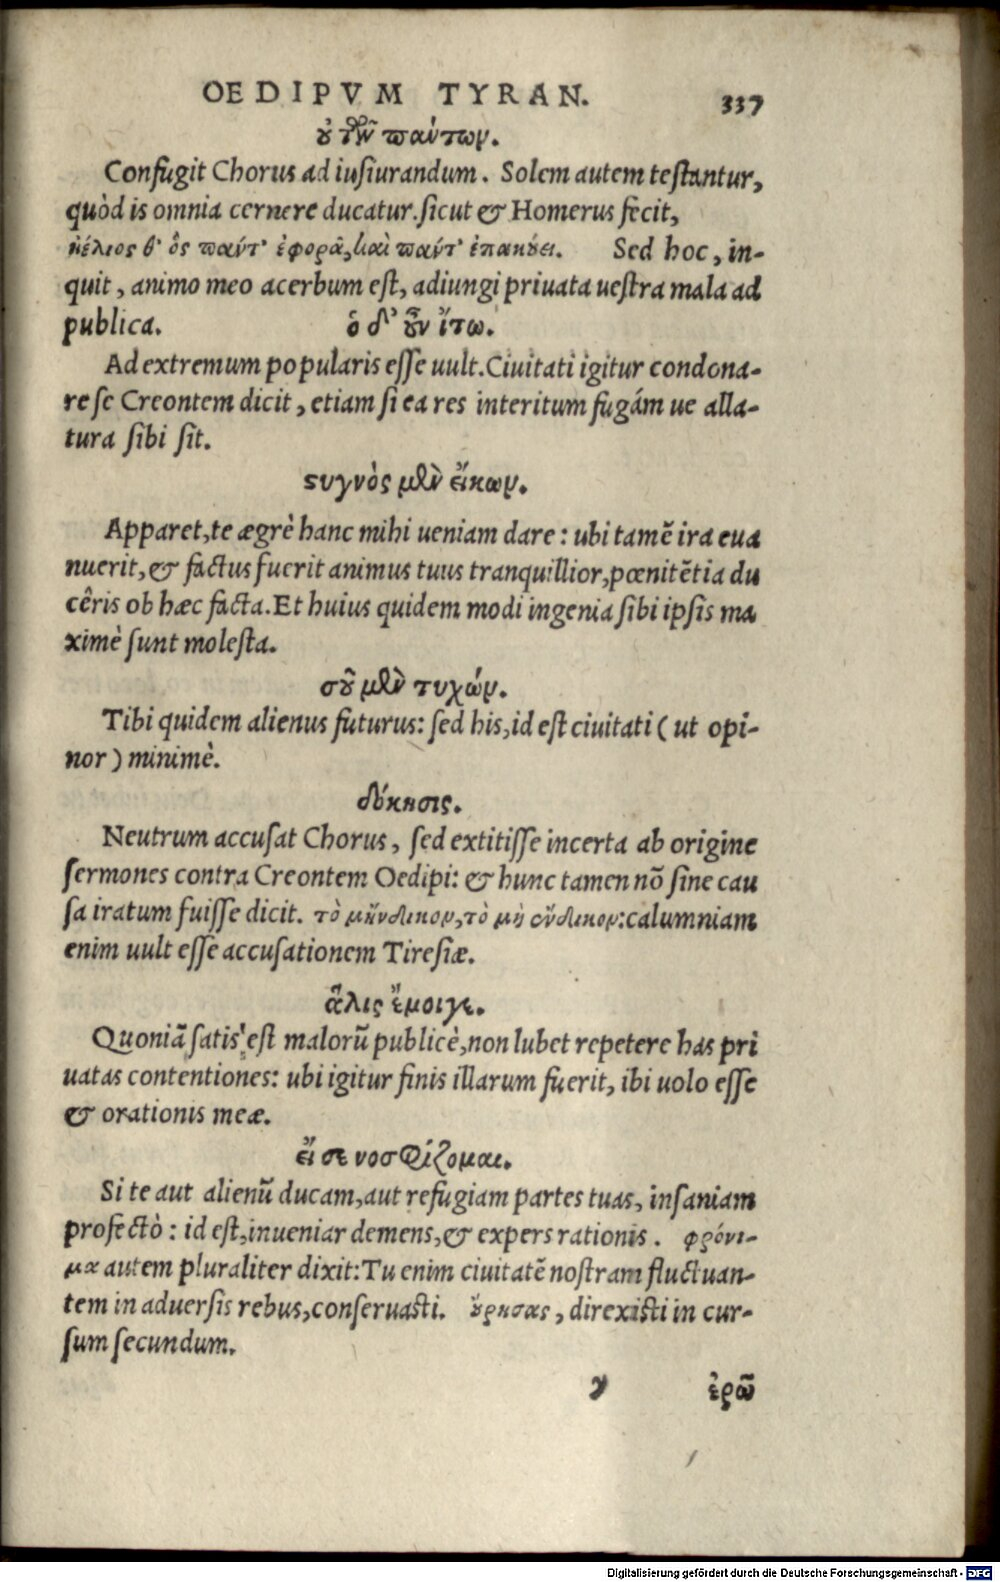 OEDIPVM TYRAN. 337
οὐ τὸν πάντων.
Confugit Chorus ad iusiurandum. Solem autem testantur,
quòd is omnia cernere ducatur. sicut & Homerus fecit,
ἠέλιος θ' ὃς πάντ' ἐφορᾷ, καὶ πάντ' ἐπακούει. Sed hoc, in-
quit, animo meo acerbum est, adiungi priuata uestra mala ad
publica. ὁ δ' οὖν ἴτω.
Ad extremum popularis esse uult. Ciuitati igitur condona-
re se Creontem dicit, etiam si ea res interitum fugám ue alla-
tura sibi sit.
στυγνὸς μὲν εἴκων.
Apparet, te ægrè hanc mihi ueniam dare: ubi tamē ira eua
nuerit, & factus fuerit animus tuus tranquillior, pœnitētia du
cêris ob hæc facta. Et huius quidem modi ingenia sibi ipsis ma
ximè sunt molesta.
σοῦ μὲν τυχών.
Tibi quidem alienus futurus: sed his, id est ciuitati (ut opi-
nor) minimè.
δόκησις.
Neutrum accusat Chorus, sed extitisse incerta ab origine
sermones contra Creontem Oedipi: & hunc tamen nō sine cau
sa iratum fuisse dicit. τὸ μἤνδικον, τὸ μὴ ἔνδικον: calumniam
enim uult esse accusationem Tiresiæ.
ἅλις ἔμοιγε.
Quoniā satis est malorū publicè, non lubet repetere has pri
uatas contentiones: ubi igitur finis illarum fuerit, ibi uolo esse
& orationis meæ.
εἴ σε νοσφίζομαι.
Si te aut alienū ducam, aut refugiam partes tuas, insaniam
profectò: id est, inueniar demens, & expers rationis. φρόνι-
μα autem pluraliter dixit: Tu enim ciuitatē nostram fluctuan-
tem in aduersis rebus, conseruasti. οὔρησας, direxisti in cur-
sum secundum.
y ἐρῶ
Digitalisierung gefördert durch die Deutsche Forschungsgemeinschaft - DFG